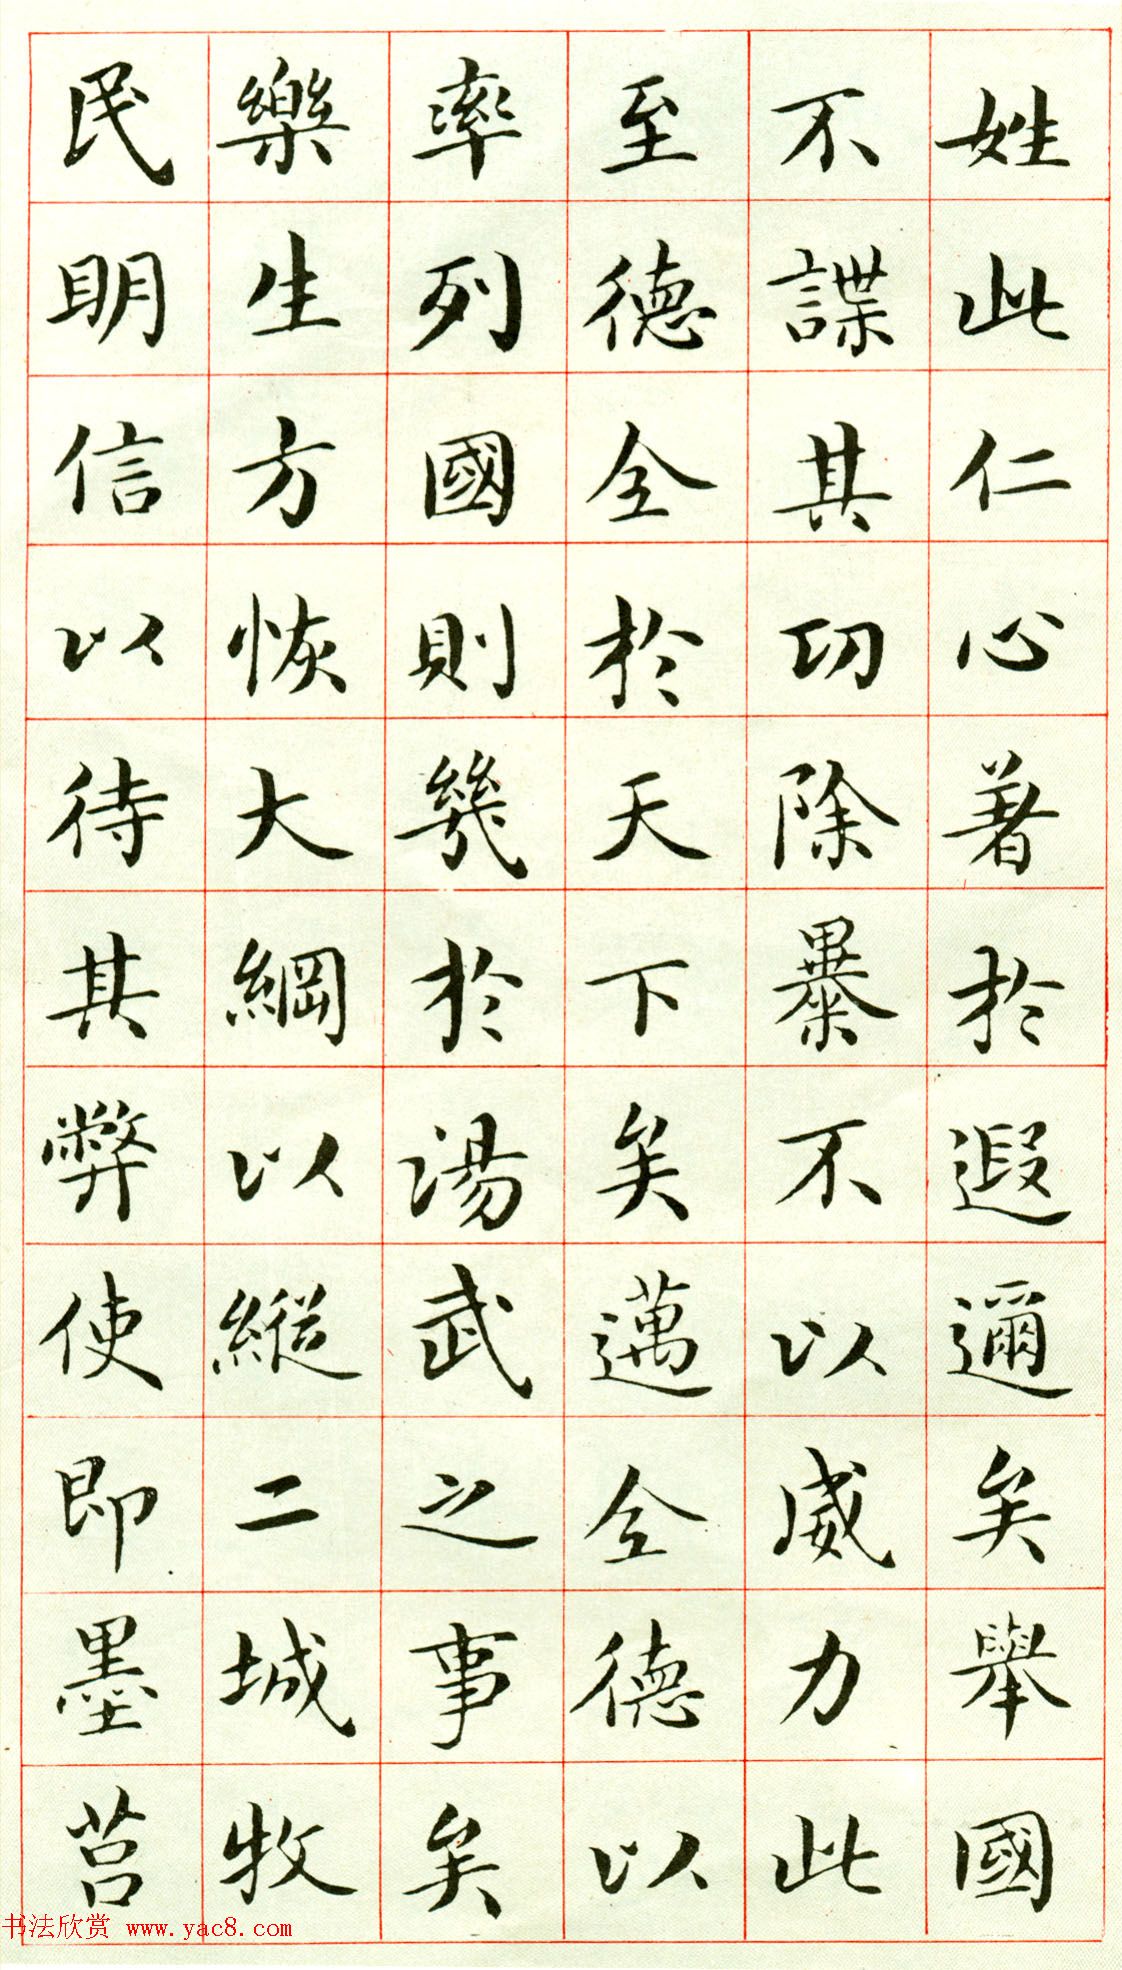 姓此仁心著於遐邇矣舉國
不諜其功除暴不以威力此
至德全於天下矣邁全德以
率列國則幾於湯武之事矣
樂生方恢大綱以縱二城牧
民明信以待其弊使即墨莒
书法欣赏 www.yac8.com